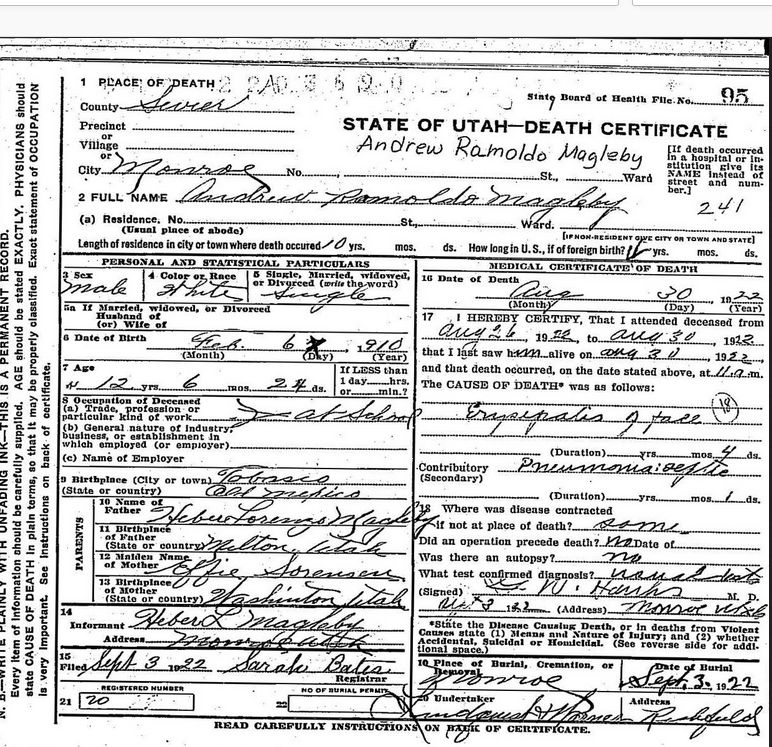 N. B.—WRITE PLAINLY WITH UNFADING INK—THIS IS A PERMANENT RECORD.
Every item of information should be carefully supplied. AGE should be stated EXACTLY. PHYSICIANS should
state CAUSE OF DEATH in plain terms, so that it may be properly classified. Exact statement of OCCUPATION
is very important. See instructions on back of certificate.
1 PLACE OF DEATH
County Sevier
State Board of Health File No. 95
Precinct
or
Village
or
City Monroe No. St., Ward
STATE OF UTAH—DEATH CERTIFICATE
Andrew Ramoldo Magleby
[If death occurred
in a hospital or in-
stitution give its
NAME instead of
street and num-
ber.]
241
2 FULL NAME Andrew Ramoldo Magleby
(a) Residence. No. St., Ward.
(Usual place of abode)
[IF NON-RESIDENT GIVE CITY OR TOWN AND STATE]
Length of residence in city or town where death occured 10 yrs. mos. ds. How long in U.S., if of foreign birth? yrs. mos. ds.
PERSONAL AND STATISTICAL PARTICULARS
3 Sex
male
4 Color or Race
White
5 Single, Married, widowed,
or Divorced (write the word)
Single
5a If Married, widowed, or Divorced
Husband of
(or) Wife of
6 Date of Birth Feb. 6 1910
(Month) (Day) (Year)
7 Age
12 yrs. 6 mos. 24 ds.
If LESS than
1 day hrs.
or min.?
8 Occupation of Deceased
(a) Trade, profession or
particular kind of work at School
(b) General nature of industry,
business, or establishment in
which employed (or employer)
(c) Name of Employer
9 Birthplace (City or town) Tobasco
(State or country) Old Mexico
PARENTS
10 Name of
Father Heber Lorenzo Magleby
11 Birthplace
of Father
(State or country) Milton, Utah
12 Maiden Name
of Mother Effie Sorensen
13 Birthplace
of Mother
(State or country) Washinton Utah
14
Informant Heber L Magleby
Address Monroe Utah
15
Filed Sept 3 1922 Sarah Bates
Registrar
21 REGISTERED NUMBER
20
22 NO OF BURIAL PERMIT
MEDICAL CERTIFICATE OF DEATH
16 Date of Death
Aug 30 1922
(Month) (Day) (Year)
17 I HEREBY CERTIFY, That I attended deceased from
Aug 26, 1922, to Aug 30, 1922
that I last saw him alive on Aug 30, 1922,
and that death occurred, on the date stated above, at 11 a.m.
The CAUSE OF DEATH* was as follows:
Erysipalis of face 18
(Duration) yrs. mos. 4 ds.
Contributory Pneumonia septic
(Secondary)
(Duration) yrs. mos. 1 ds.
18 Where was disease contracted
if not at place of death? same
Did an operation precede death? no Date of
Was there an autopsy? no
What test confirmed diagnosis? usual tests
(Signed) M. D.
(Address) Monroe Utah
*State the Disease Causing Death, or in deaths from Violent
Causes state (1) Means and Nature of Injury; and (2) whether
Accidental, Suicidal or Homicidal. (See reverse side for addi-
tional space.)
19 Place of Burial, Cremation, or
Removal
Monroe
Date of Burial
Sept. 3. 1922
20 Undertaker
Address
Richfield
READ CAREFULLY INSTRUCTIONS ON BACK OF CERTIFICATE.